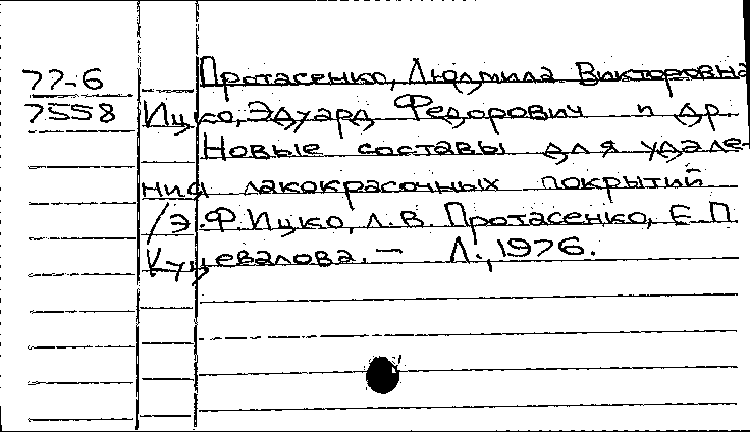 77-6
7558
Протасенко, Людмила Викторовна
Ицко, Эдуард Федорович и др.
Новые составы для удале-
ния лакокрасочных покрытий
/Э.Ф. Ицко, Л.В. Протасенко, Е.П.
Куцевалова. — Л., 1976.